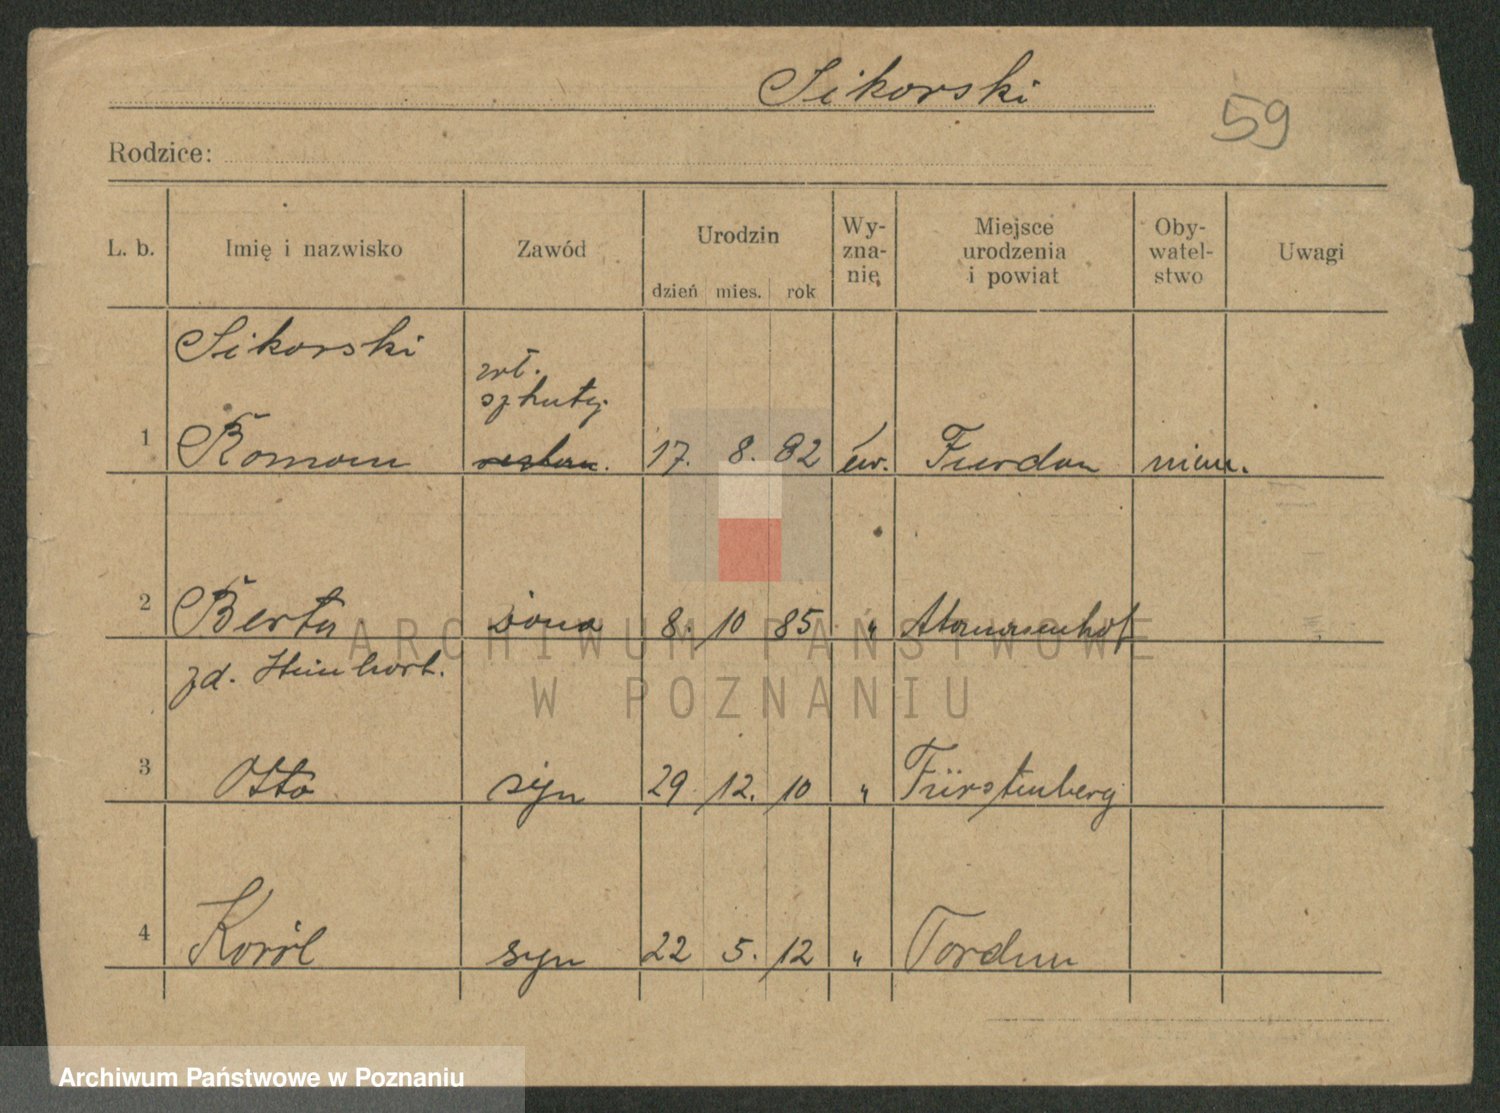 Sikorski
59
Rodzice:
L. b. Imię i nazwisko Zawód Urodzin Wy-zna-nię Miejsce urodzenia i powiat Oby-watel-stwo Uwagi
dzień mies. rok
Sikorski
1 Roman 17. 8. 82 ew. Furdon niem.
2 Berta żona 8. 10 85 "
zd.
3 Otto syn 29. 12. 10 " Fürstenberg
4 Karól syn 22 5. 12 "
ARCHIWUM PAŃSTWOWE
W POZNANIU
Archiwum Państwowe w Poznaniu